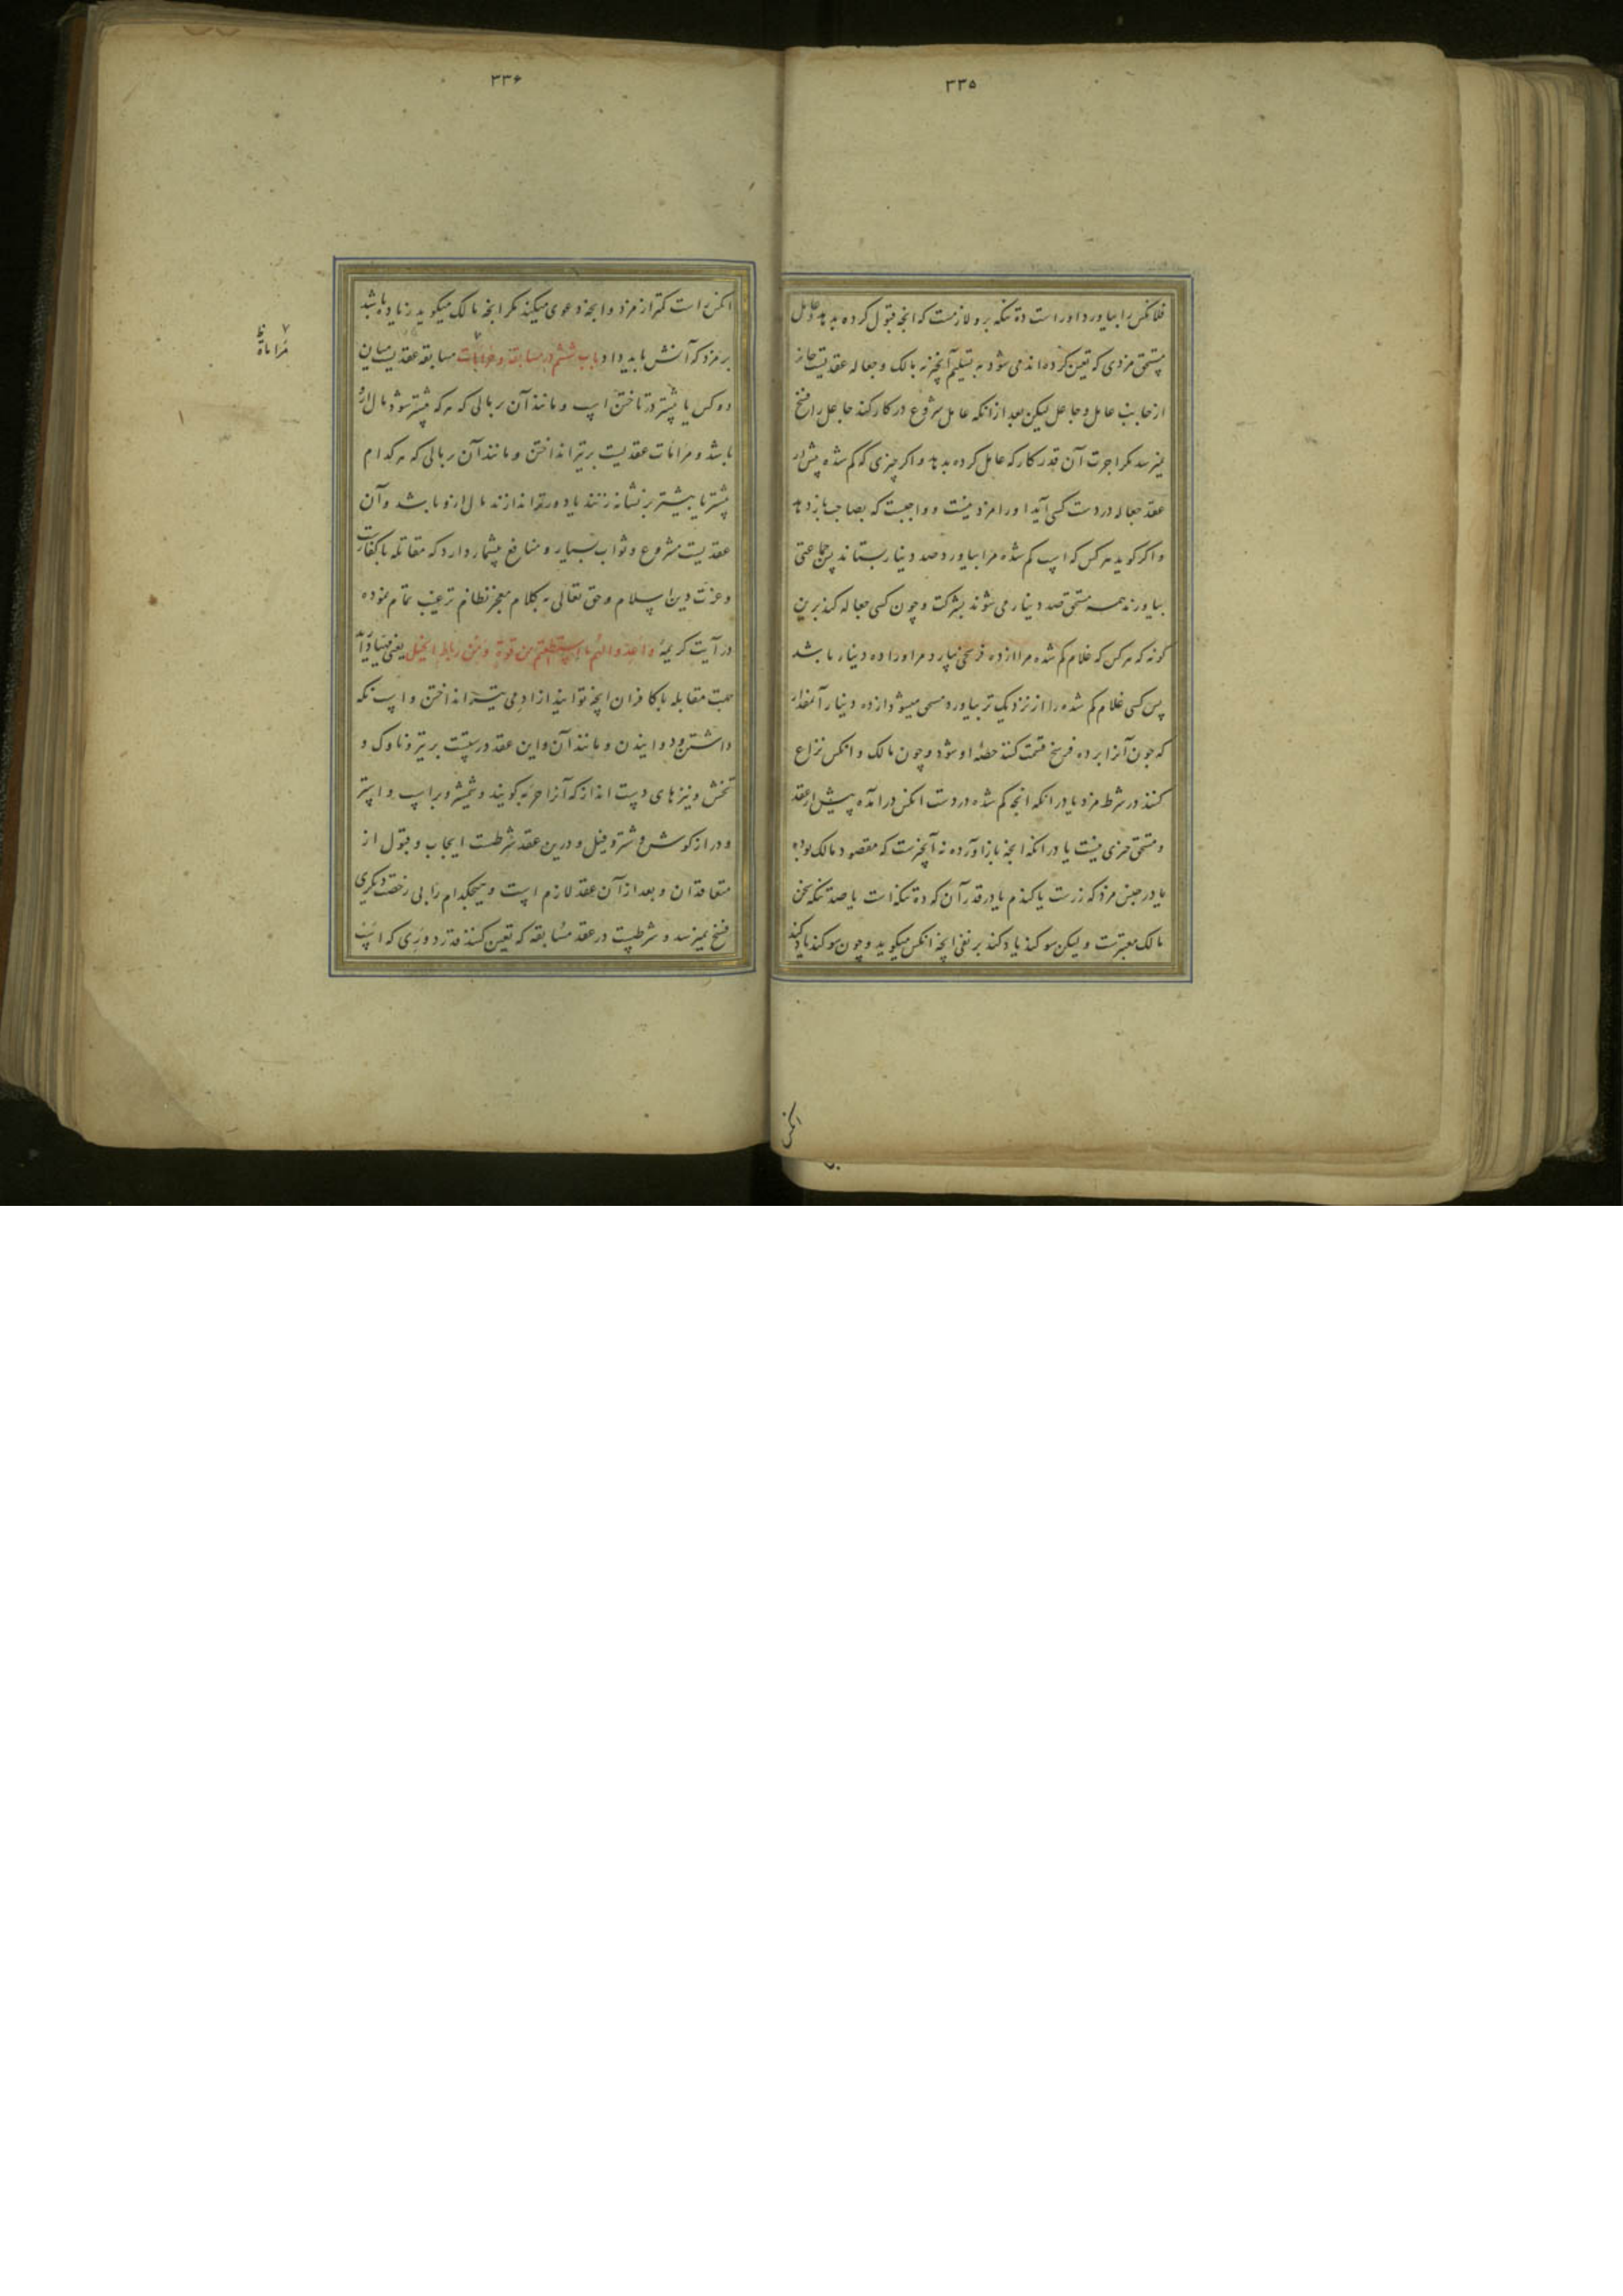 ۳۳۵
فلانکس را بیاورد او راست ده تنکه برو لازمست که انچه قبول کرده بدهد و عامل
مستحق مزدی که تعین کرده‌اند می شود به تسلیم آنچیز به مالک و جعاله عقدیست جایز
از جانب عامل و جاعل لیکن بعد ازانکه عامل شروع در کار کند جاعل را فسخ
نیرسد مکر اجرت آن قدر کار که عامل کرده بدهد و اکر چیزی که کم شده پیش از
عقد جعاله در دست کسی آید او را مزد نیست و واجبست که بصاحب بازدهد
و اکر کوید هر کس که اسپ کم شده مرا بیاورد صد دینار بستاند پس جماعتی
بیاورند همه مستحق صد دینار می شوند بشرکت و چون کسی جعاله کند برین
کونه که هر کس که غلام کم شده مرا از ده فرسخی بیارد مر او را ده دینار باشد
پس کسی غلام کم شده را از نزدیک تر بیاورد مستحق میشود از ده دینار آنمقدار
که چون آنرا بر ده فرسخ قسمت کنند حصهٔ او شود و چون مالک و انکس نزاع
کنند در شرط مزد یا در انکه انچه کم شده در دست انکس درآمده پیش از عقد
و مستحق چیزی نیست یا در انکه انچه بازآورده نه آنچیزست که مقصود مالک بوده
یا در جنس مزد که زرست یا کندم یا در قدر آن که ده تنکه است یا صد تنکه سخن
مالک معتبرست و لیکن سوکند یاد کند بر نفی انچه انکس میکوید و چون سوکند یاد کند
انکس
۳۳۶
انکس راست کمتر از مزد و انچه دعوی میکند مکر انچه مالک میکوید زیاده باشد
بر مزد که آنش باید داد باب ششم در مسابقه و مرامات مسابقه عقدیست میان
دو کس یا بیشتر در تاختن اسپ و مانند آن بر مالی که هر که پیشتر شود مال ازو
باشد و مرامات عقدیست بر تیر انداختن و مانند آن بر مالی که هر کدام
پیشتر یا بیشتر بر نشانه زنند یا دورتر اندازند مال ازو باشد و آن
عقدیست مشروع و ثواب بسیار و منافع بیشمار دارد که مقاتله با کفارست
و عزت دین اسلام و حق تعالی به کلام معجز نظام ترغیب تمام نموده
در آیت کریمهٔ واعدوا لهم ما استطعتم من قوة ومن رباط الخیل یعنی مهیا دارید
جهت مقابله با کافران انچه توانید از آدمی تیر انداختن و اسپ نکه
داشتن و دوانیدن و مانند آن و این عقد درستست بر تیر و ناوک و
تخش و نیزهای دست انداز که آنرا حربه کویند و شمشیر و بر اسپ و استر
و درازکوش و شتر و فیل و درین عقد شرطست ایجاب و قبول از
متعاقدان و بعد از آن عقد لازم است و هیچکدام را بی رخصت دیکری
فسخ نمیرسد و شرطست در عقد مسابقه که تعین کنند قدر دوری که اسپ
۷ ظ
مراماة